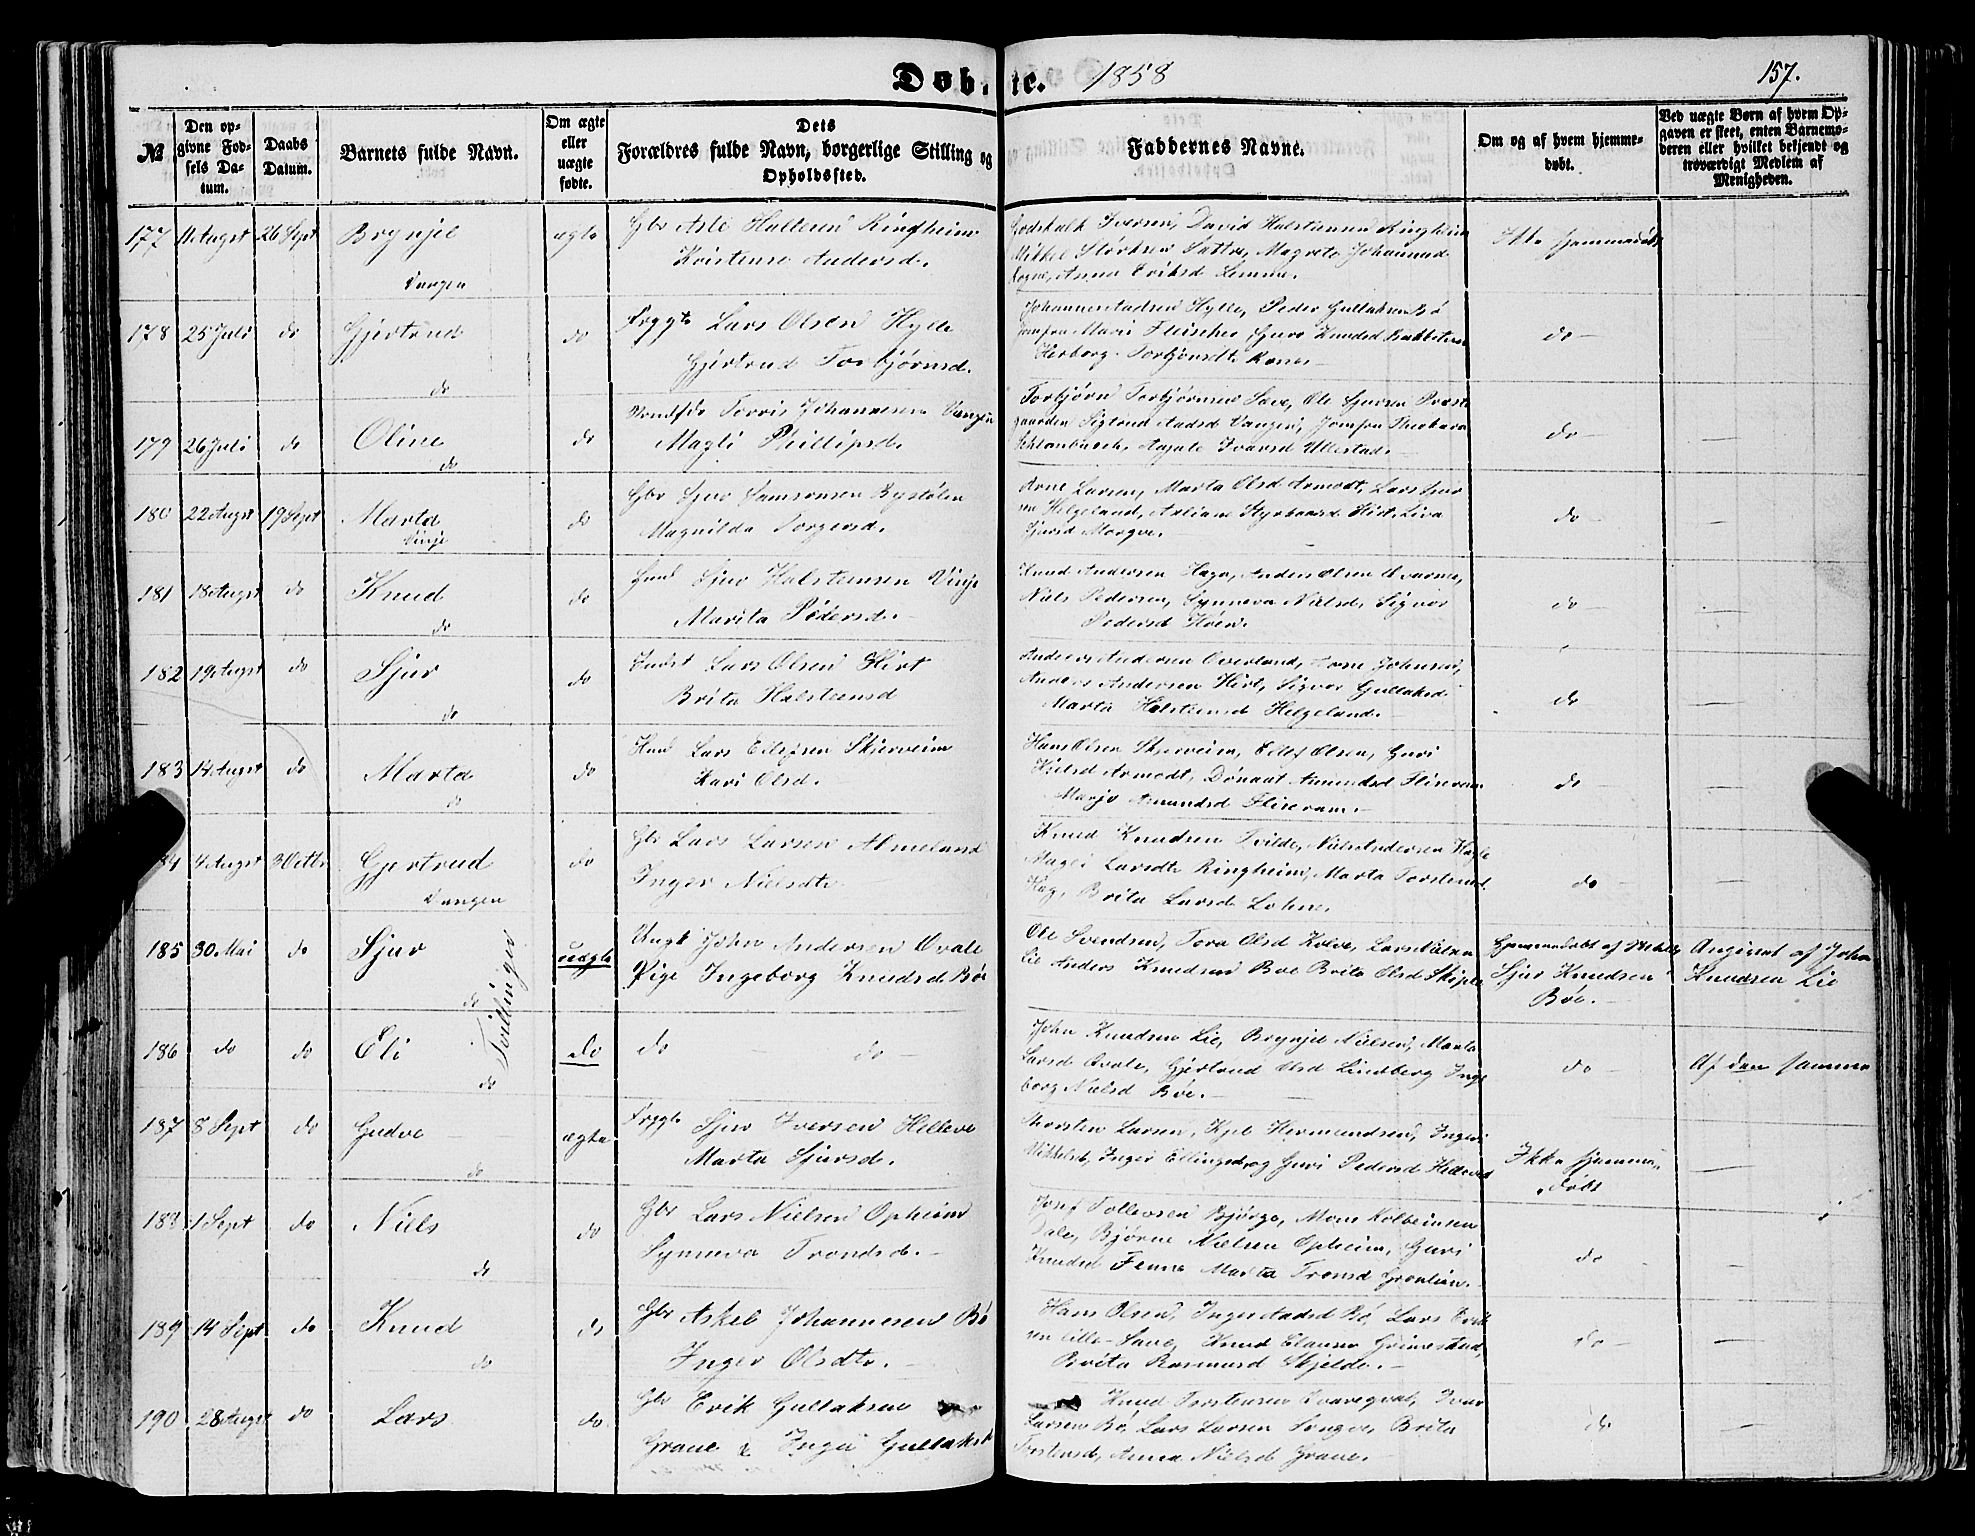 Døbte. 1858
157.
№
Den opgivne Fødsels Datum.
Daabs Datum.
Barnets fulde Navn.
Om ægte eller uægte fødte.
Dets Forældres fulde Navn, borgerlige Stilling og Opholdssted.
Faddernes Navne.
Om og af hvem hjemmedøbt.
Ved uægte Børn af hvem Opgaven er skeet, enten Barnemoderen eller hvilket bekjendt og troværdigt Medlem af Menigheden.
177 11 Augst 26 Sept Brynjel ægte Gbr Asle Ringheim
Vangen Kristense Andersd.
Godskalk Iversen, David Halsteinsen Ringheim
Mikkel Størksen Sættre, Magrete Johannesd
Anna Eriksd Lemme.
Ikke hjemmedøbt
178 25 Juli do Gjertrud do Lars Olsen Hylle
do Gjertrud Torbjørnsd.
Hylle, Peder Gullaksen Bø
Jomfru Mari Fleischer Knudsd
Herborg Torbjørnsdt. Rene
do
179 26 Juli do Oline do Torris Johannesen Vangen
do Magli Phillipsd.
Torbjørn Torbjørnsen Save, Ole Sjursen Præste
gaarden Sigtrud Aadsd Vangen, Jomfru
Agate Ivarsd Ullestad.
do
180 22 Augst 19 Sept Marta do Gbr Sjur Samsonsen Bystølen
Vinje Magnilda Torgersd.
Arne Larsen, Marta Olsd Armodt, Lars Sjur
sen Helgeland, Liva
Sjursd Morgve.
do
181 18 Augst do Knud do Sjur Halsteinsen Vinje
do Marita Pedersd.
Knud Andersen Haga, Anders Olsen
Niels Pedersen, Synneva Nielsd, Sigvor
Pedersd
do
182 19 Augst do Sjur do Lars Olsen Hirt
do Brita Halsteinsd
Anders Andersen Overland, Arne Johnsen,
Anders Andersen Hirt, Sigvor Gullaksd
Marta Halsteinsd Helgeland.
do
183 14 Augst do Marta do Lars Eilefsen Skjerveim
do Kari Olsd.
Hans Olsen Skjerveim, Eilef Olsen, Guri
Armodt, Amundsd
Amundsd
do
4 Augst 3 Octbr Gjertrud do Gbr Lars Larsen Almeland
Vangen Inger Nielsdtr
Knud Knudsen Tvilde, Niels Andersen
Magli Larsdtr Ringheim, Marta Torsteinsd
Brita Larsd Lohne.
do
185 30 Mai do Sjur uægte Ungk John Andersen Qvale
do Pige Ingeborg Knudsd Bøe
Tvillinger
Ole Svendsen, Tora Olsd Kolve, Lars Nielsen
Lie Anders Knudsen Bøe Brita Olsd
Hjemmedøbt af
Sjur Knudsen
Bøe.
Angivet af John
Knudsen Lie
186 do do Eli do do do
do
John Knudsen Lie, Brynjel Nielsen, Marta
Larsd Qvale, Gjertrud Olsd Lindberg Inge
borg Nielsd Bøe.
do
Af den samme
187 8 Sept do Gudve ægte Sjur Iversen Helleve
do Marta Sjursd.
Torsten Larsen, Kjel Hermundsen, Ingeri
Mikkelsd, Inger Ellingsd og Guri Pedersd
Ikke hjemme
døbt
188 1 Sept do Niels do Gbr Lars Nielsen Opheim
do Synneva Trondsd.
Josef Tollevsen Bjørge, Mons Kolbeinsen
Dale, Bjørne Nielsen Opheim, Guri
Knudsd Fenne Marta Tronsd Grønlien.
do
189 14 Sept do Knud do Gbr Askel Johannesen Bø
do Inger Olsdtr.
Hans Olsen, Inger Aadsd Bø, Lars Erik
sen Lille-Save, Knud Clausen Grimestad,
Brita Rasmusd Skjelde.
do
190 28 Augst do Lars do Gbr Erik Gullaksen
Graue & Inga Gullaksd
Knud Torsteinsen, Ivar
Larsen Bø, Lars Larsen Brita
Torsteinsd, Anna Nielsd Graue.
do